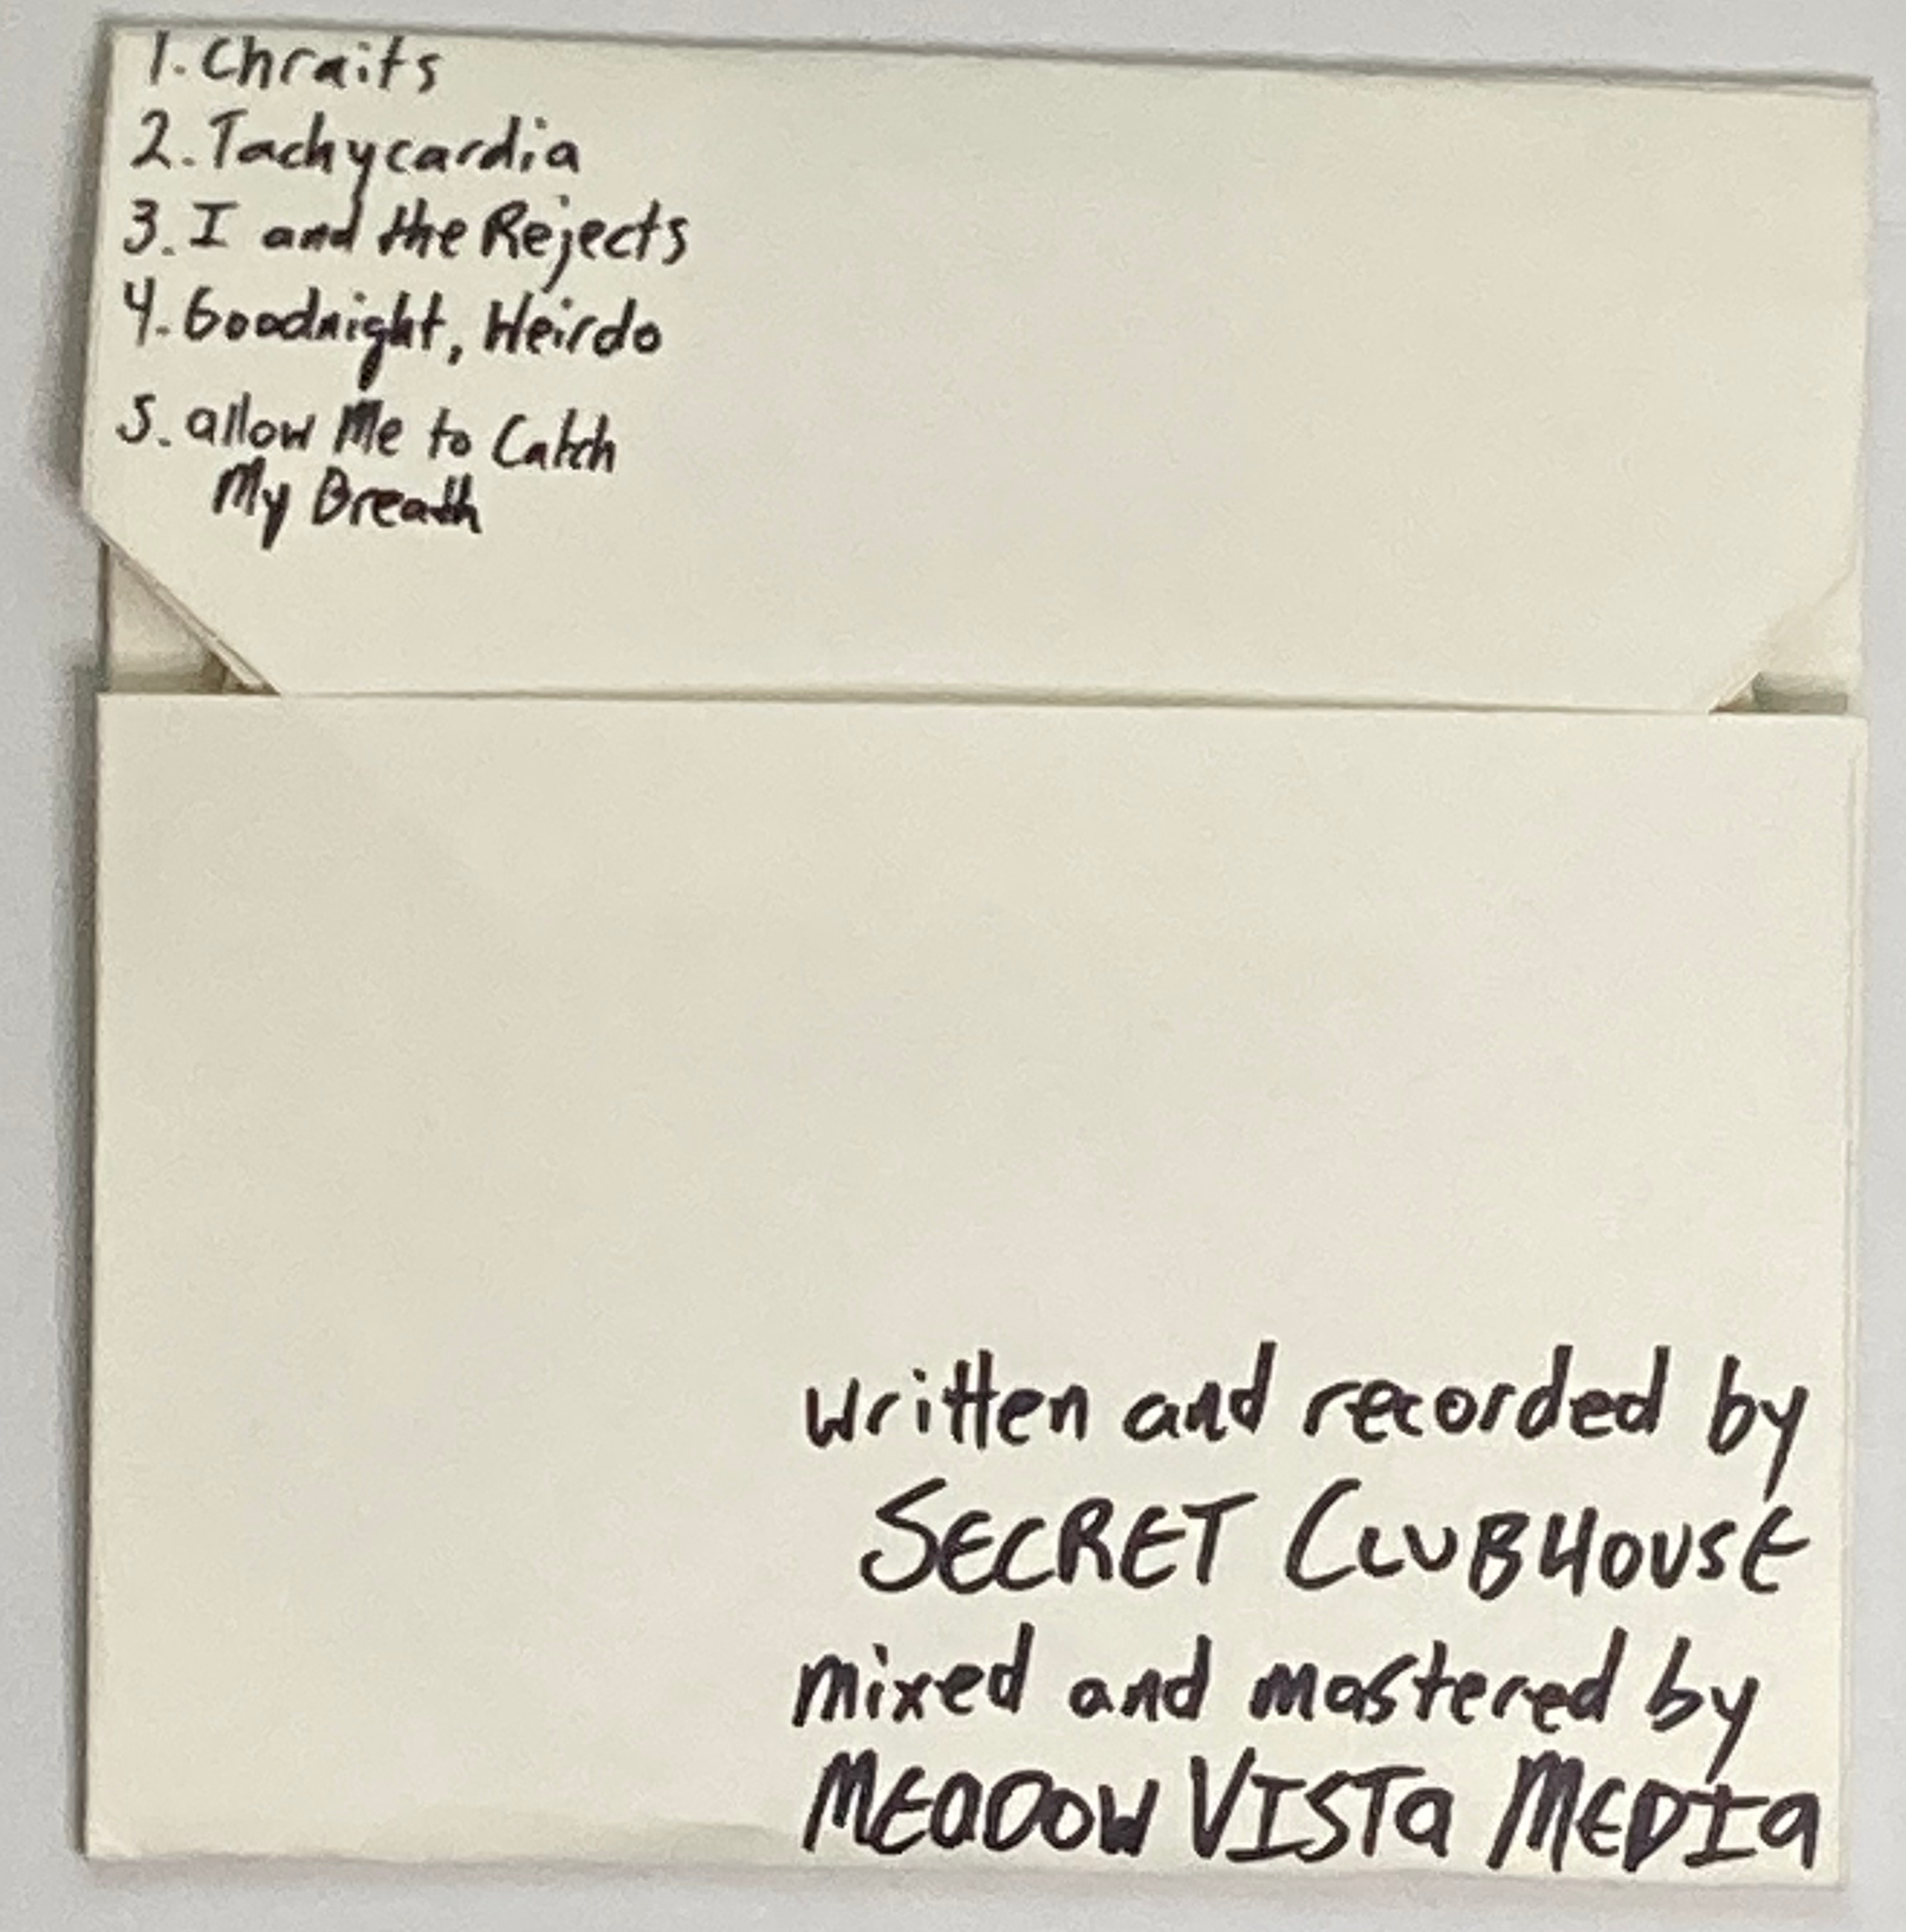 1. Chraits
2. Tachycardia
3. I and the Rejects
4. Goodnight, Weirdo
5. allow Me to Catch
My Breath
written and recorded by
SECRET CLUBHOUSE
mixed and mastered by
MEADOW VISTA MEDIA